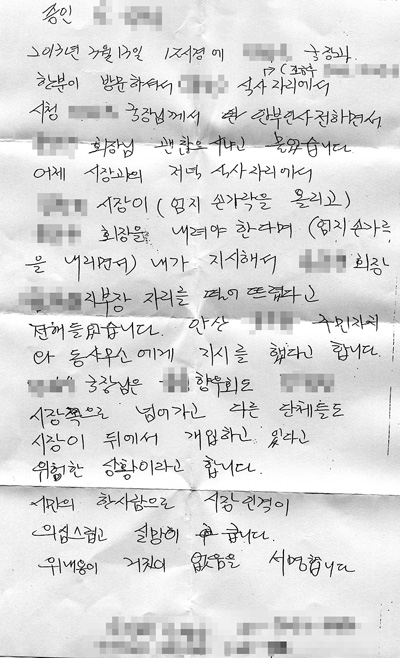 증인
2013년 3월 13일 12시경에 국장과
(
한분이 방문하셔서 식사자리에서
시청 국장님께서 안부인사 전하면서
회장님 괜찮으시냐고 물었습니다
어제 시장과의 저녁 식사자리에서
시장이 (엄지손가락을 올리고)
회장을 내려야 한다며 (엄지손가락
을 내리면서) 내가 지시해서 회장
지부장 자리를 떨어뜨렸다고
전해들었습니다. 안산 주민자치
와 동사무소에게 지시를 했다고 합니다.
국장님은 향우회도
시장쪽으로 넘어가고 다른 단체들도
시장이 뒤에서 개입하고 있다고
위험한 상황이라고 합니다.
시민의 한사람으로 시장 인격이
의심스럽고 실망이 큽니다.
위내용이 거짓이 없음을 서명합니다